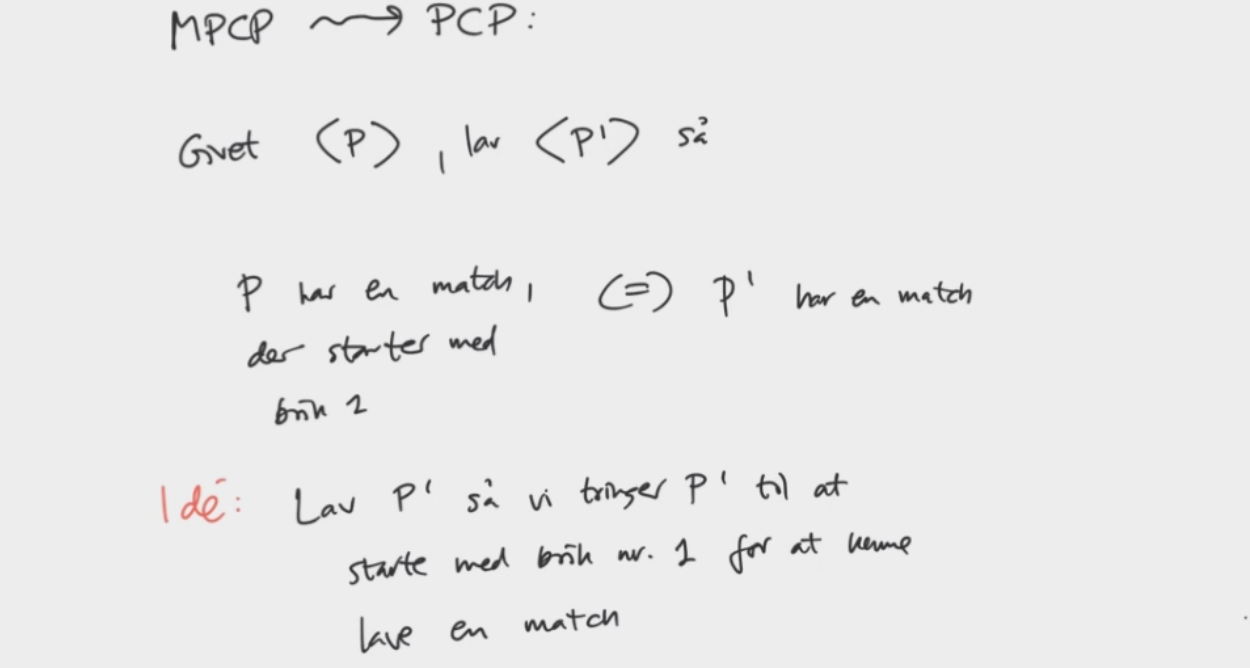 MPCP ⇝ PCP:
Givet ⟨P⟩, lav ⟨P'⟩ så
P har en match, (=) P' har en match
der starter med
brik 1
Idé: Lav P' så vi tvinger P' til at
starte med brik nr. 1 for at kunne
lave en match